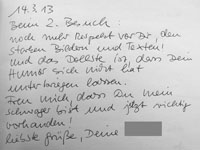 14.3.13
Beim 2. Besuch:
noch mehr Respekt vor Dir, den
starken Bildern und Texten!
und das Tollste ist, dass Dein
Humor sich nicht hat
unterkriegen lassen.
Freu mich, dass Du mein
Schwager bist und jetzt richtig
vorhanden!
liebste Grüße, Deine